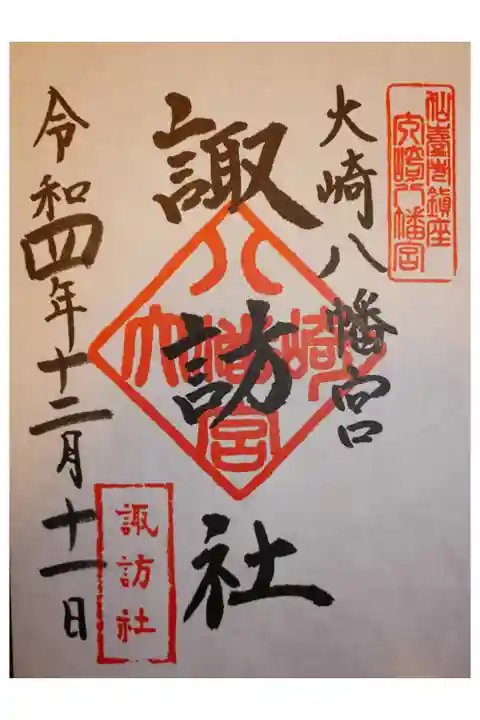 仙臺市鎮座
大崎八幡宮
大崎八幡宮
諏訪社
大崎八幡宮
令和四年十二月十一日
諏訪社